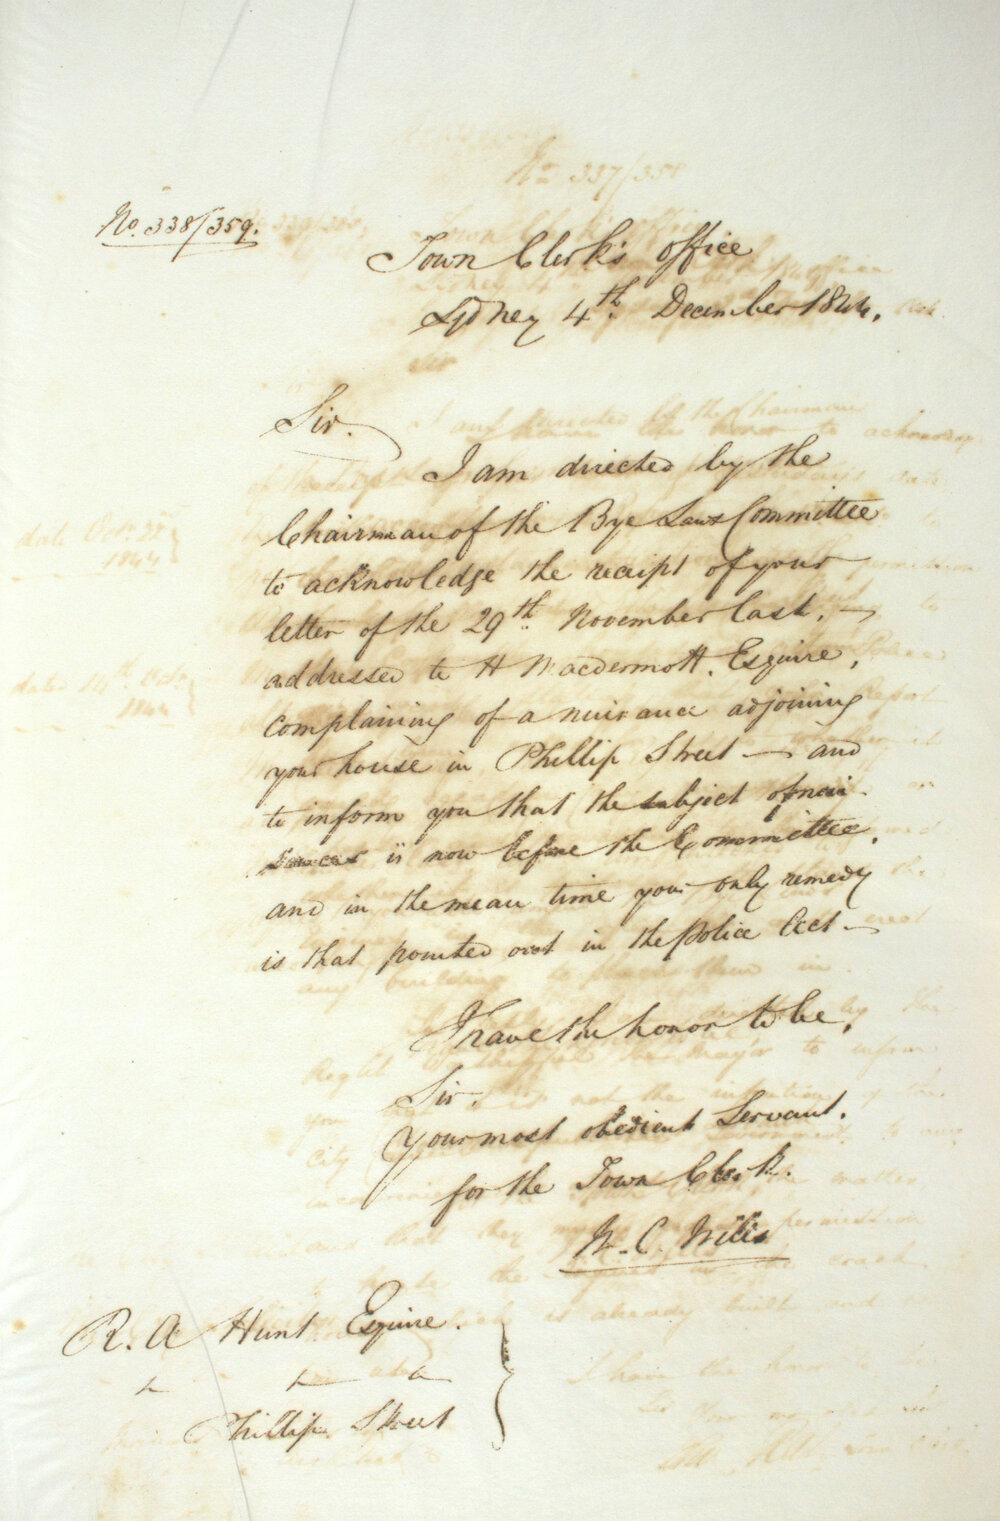 No. 338/359.
Town Clerk's office
Sydney 4th. December 1844.
Sir.
I am directed by the
Chairman of the Bye Laws Committee
to acknowledge the receipt of your
letter of the 29th. November last. —
addressed to H Macdermott. Esquire,
complaining of a nuisance adjoining
your house in Phillip Street — and
to inform you that the subject of nui-
sances is now before the Committee,
and in the mean time your only remedy
is that pointed out in the Police Act —
I have the honor to be,
Sir,
Your most obedient Servant.
for the Town Clerk.
W. C. Wills
R. A Hunt Esquire.
Phillip Street